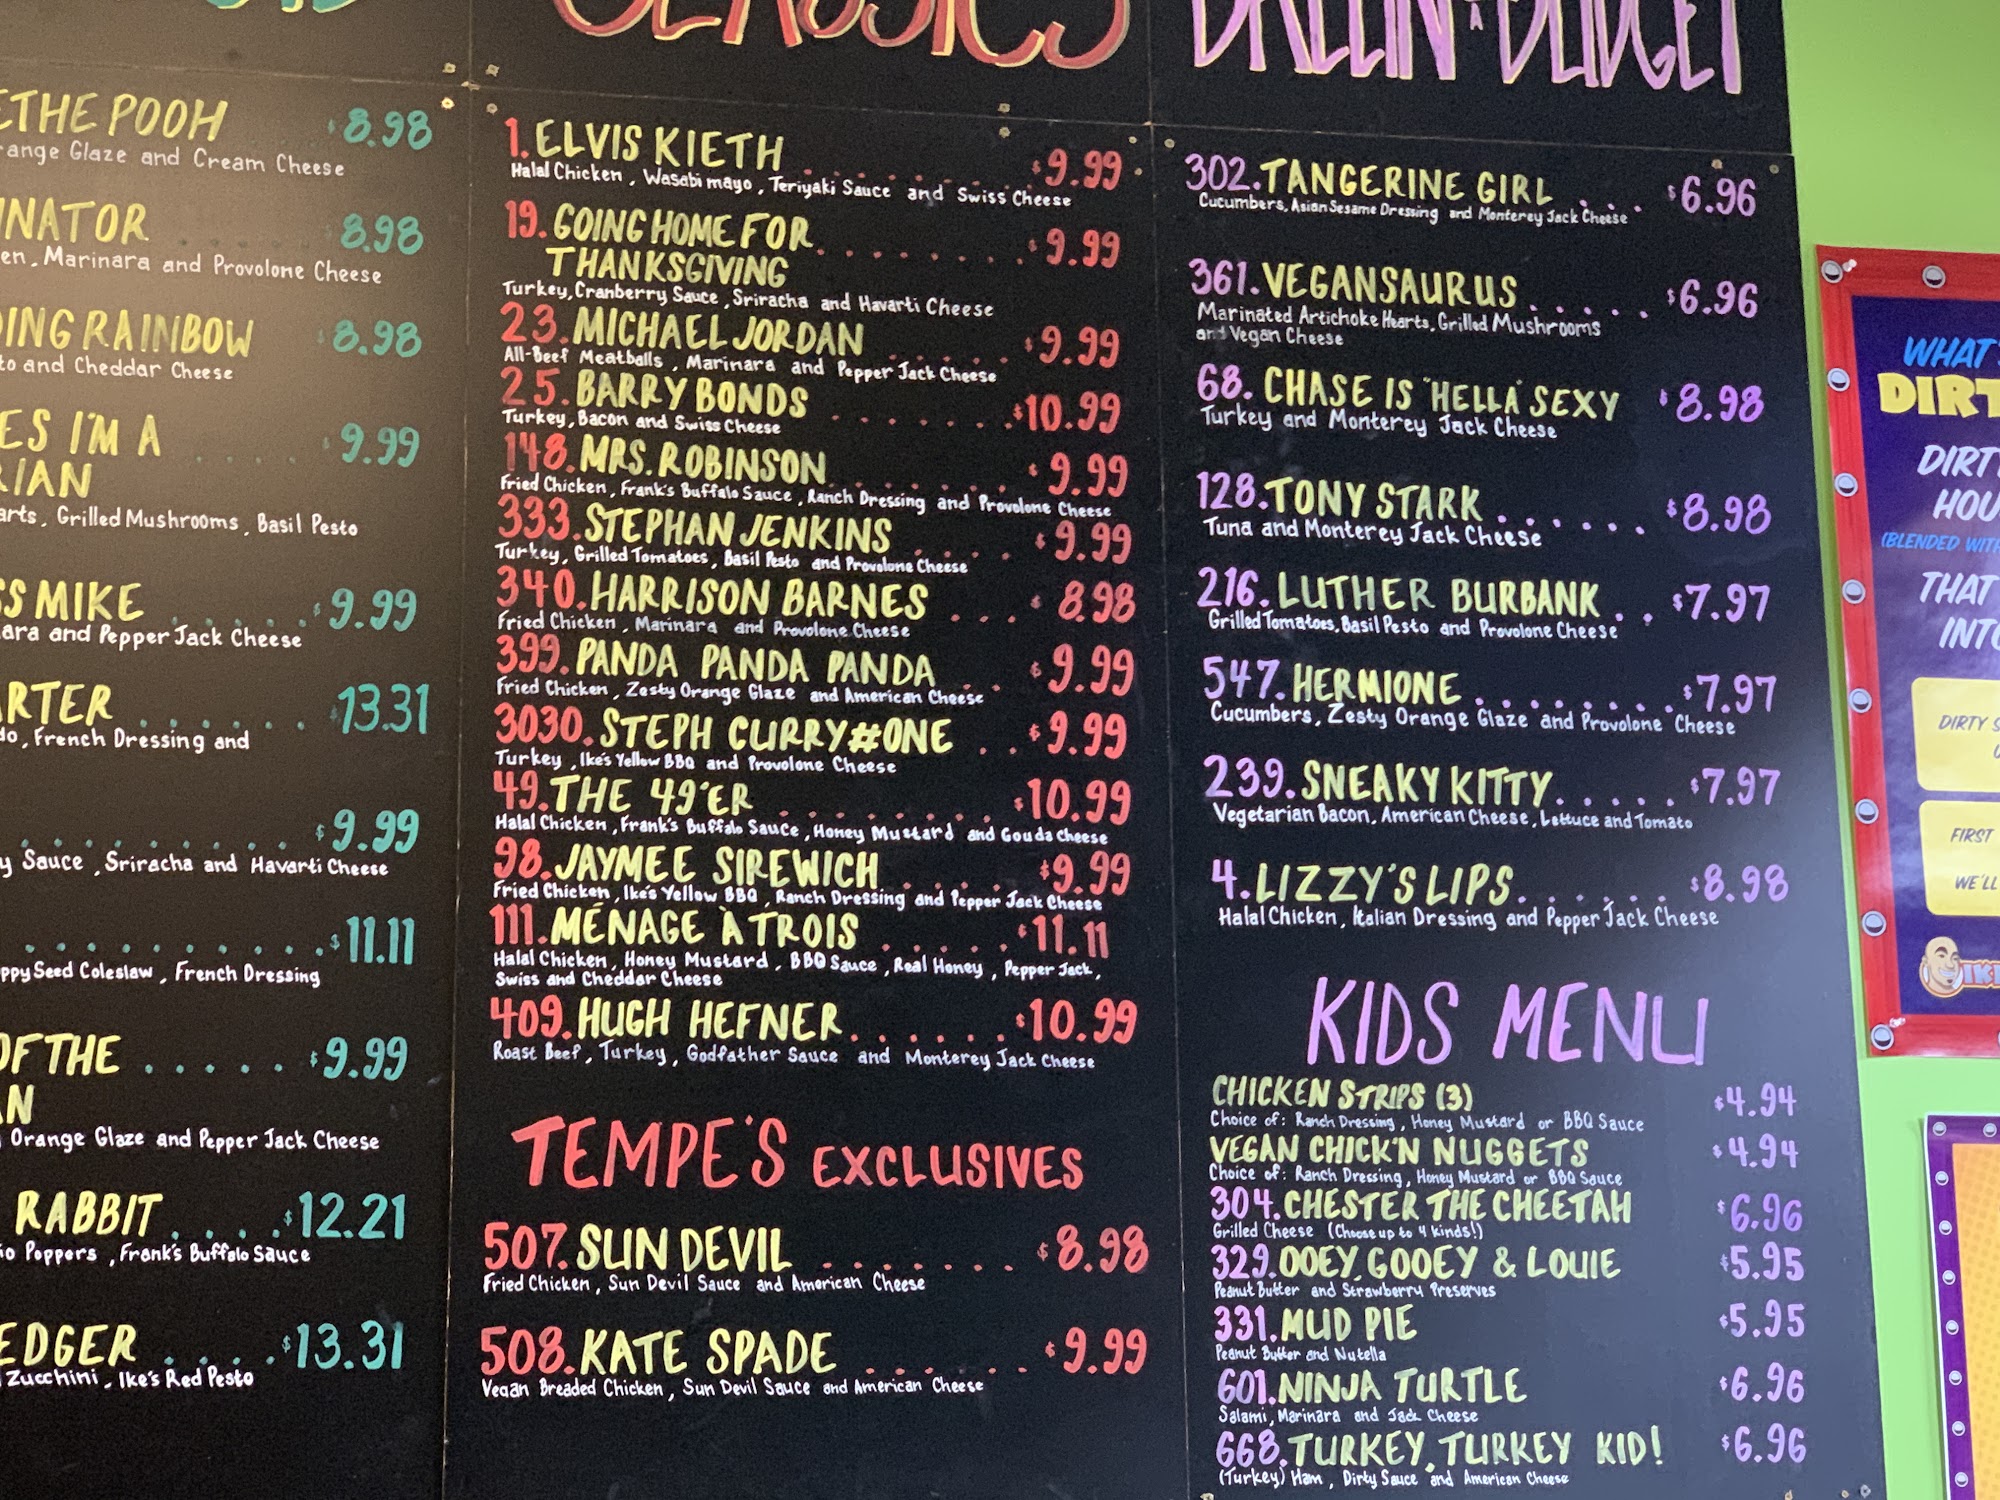 CLASSICS
BALLIN ON A BUDGET
THE POOH $8.98
Orange Glaze and Cream Cheese
NATOR $8.98
Marinara and Provolone Cheese
RAINBOW $8.98
and Cheddar Cheese
I'M A $9.99
Grilled Mushrooms, Basil Pesto
MIKE $9.99
and Pepper Jack Cheese
$13.31
French Dressing and
$9.99
Sauce, Sriracha and Havarti Cheese
$11.11
Seed Coleslaw, French Dressing
OF THE $9.99
Orange Glaze and Pepper Jack Cheese
RABBIT $12.21
Poppers, Frank's Buffalo Sauce
EDGER $13.31
Zucchini, Ike's Red Pesto
1. ELVIS KIETH $9.99
Halal Chicken, Wasabi mayo, Teriyaki Sauce and Swiss Cheese
19. GOING HOME FOR $9.99
THANKSGIVING
Turkey, Cranberry Sauce, Sriracha and Havarti Cheese
23. MICHAEL JORDAN $9.99
All-Beef Meatballs, Marinara and Pepper Jack Cheese
25. BARRY BONDS $10.99
Turkey, Bacon and Swiss Cheese
148. MRS. ROBINSON $9.99
Fried Chicken, Frank's Buffalo Sauce, Ranch Dressing and Provolone Cheese
333. STEPHAN JENKINS $9.99
Turkey, Grilled Tomatoes, Basil Pesto and Provolone Cheese
340. HARRISON BARNES $8.98
Fried Chicken, Marinara and Provolone Cheese
399. PANDA PANDA PANDA $9.99
Fried Chicken, Zesty Orange Glaze and American Cheese
3030. STEPH CURRY#ONE $9.99
Turkey, Ike's Yellow BBQ and Provolone Cheese
49. THE 49'ER $10.99
Halal Chicken, Frank's Buffalo Sauce, Honey Mustard and Gouda Cheese
98. JAYMEE SIREWICH $9.99
Fried Chicken, Ike's Yellow BBQ, Ranch Dressing and Pepper Jack Cheese
111. MÉNAGE À TROIS $11.11
Halal Chicken, Honey Mustard, BBQ Sauce, Real Honey, Pepper Jack,
Swiss and Cheddar Cheese
409. HUGH HEFNER $10.99
Roast Beef, Turkey, Godfather Sauce and Monterey Jack Cheese
TEMPE'S EXCLUSIVES
507. SUN DEVIL $8.98
Fried Chicken, Sun Devil Sauce and American Cheese
508. KATE SPADE $9.99
Vegan Breaded Chicken, Sun Devil Sauce and American Cheese
302. TANGERINE GIRL $6.96
Cucumbers, Asian Sesame Dressing and Monterey Jack Cheese
361. VEGANSAURUS $6.96
Marinated Artichoke Hearts, Grilled Mushrooms
and Vegan Cheese
68. CHASE IS "HELLA" SEXY $8.98
Turkey and Monterey Jack Cheese
128. TONY STARK $8.98
Tuna and Monterey Jack Cheese
216. LUTHER BURBANK $7.97
Grilled Tomatoes, Basil Pesto and Provolone Cheese
547. HERMIONE $7.97
Cucumbers, Zesty Orange Glaze and Provolone Cheese
239. SNEAKY KITTY $7.97
Vegetarian Bacon, American Cheese, Lettuce and Tomato
4. LIZZY'S LIPS $8.98
Halal Chicken, Italian Dressing and Pepper Jack Cheese
KIDS MENU
CHICKEN STRIPS (3) $4.94
Choice of: Ranch Dressing, Honey Mustard or BBQ Sauce
VEGAN CHICK'N NUGGETS $4.94
Choice of: Ranch Dressing, Honey Mustard or BBQ Sauce
304. CHESTER THE CHEETAH $6.96
Grilled Cheese (Choose up to 4 kinds!)
329. OOEY, GOOEY & LOUIE $5.95
Peanut Butter and Strawberry Preserves
331. MUD PIE $5.95
Peanut Butter and Nutella
601. NINJA TURTLE $6.96
Salami, Marinara and Jack Cheese
668. TURKEY, TURKEY KID! $6.96
(Turkey) Ham, Dirty Sauce and American Cheese
WHAT'S
DIRT
DIRTY
HOU
(BLENDED WITH
THAT
INTO
DIRTY S
FIRST
WE'LL
IKE